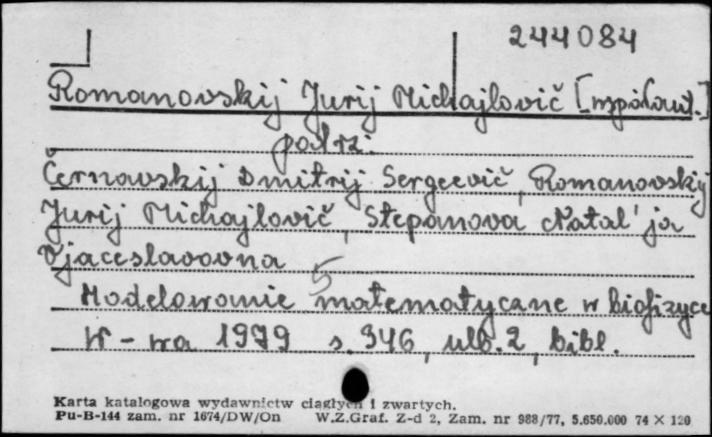 244084
Romanovskij Jurij Michajlovič [współaut.]
patrz:
Černavskij Dmitrij Sergeevič, Romanovskij
Jurij Michajlovič, Stepanova Natal'ja
Vjaceslavovna
Modelowanie matematyczne w biofizyce
W-wa 1979 s. 346, ulb. 2, bibl.
Karta katalogowa wydawnictw ciągłych i zwartych.
Pu-B-144 zam. nr 1674/DW/On W.Z.Graf. Z-d 2, Zam. nr 988/77, 5.650.000 74 X 120